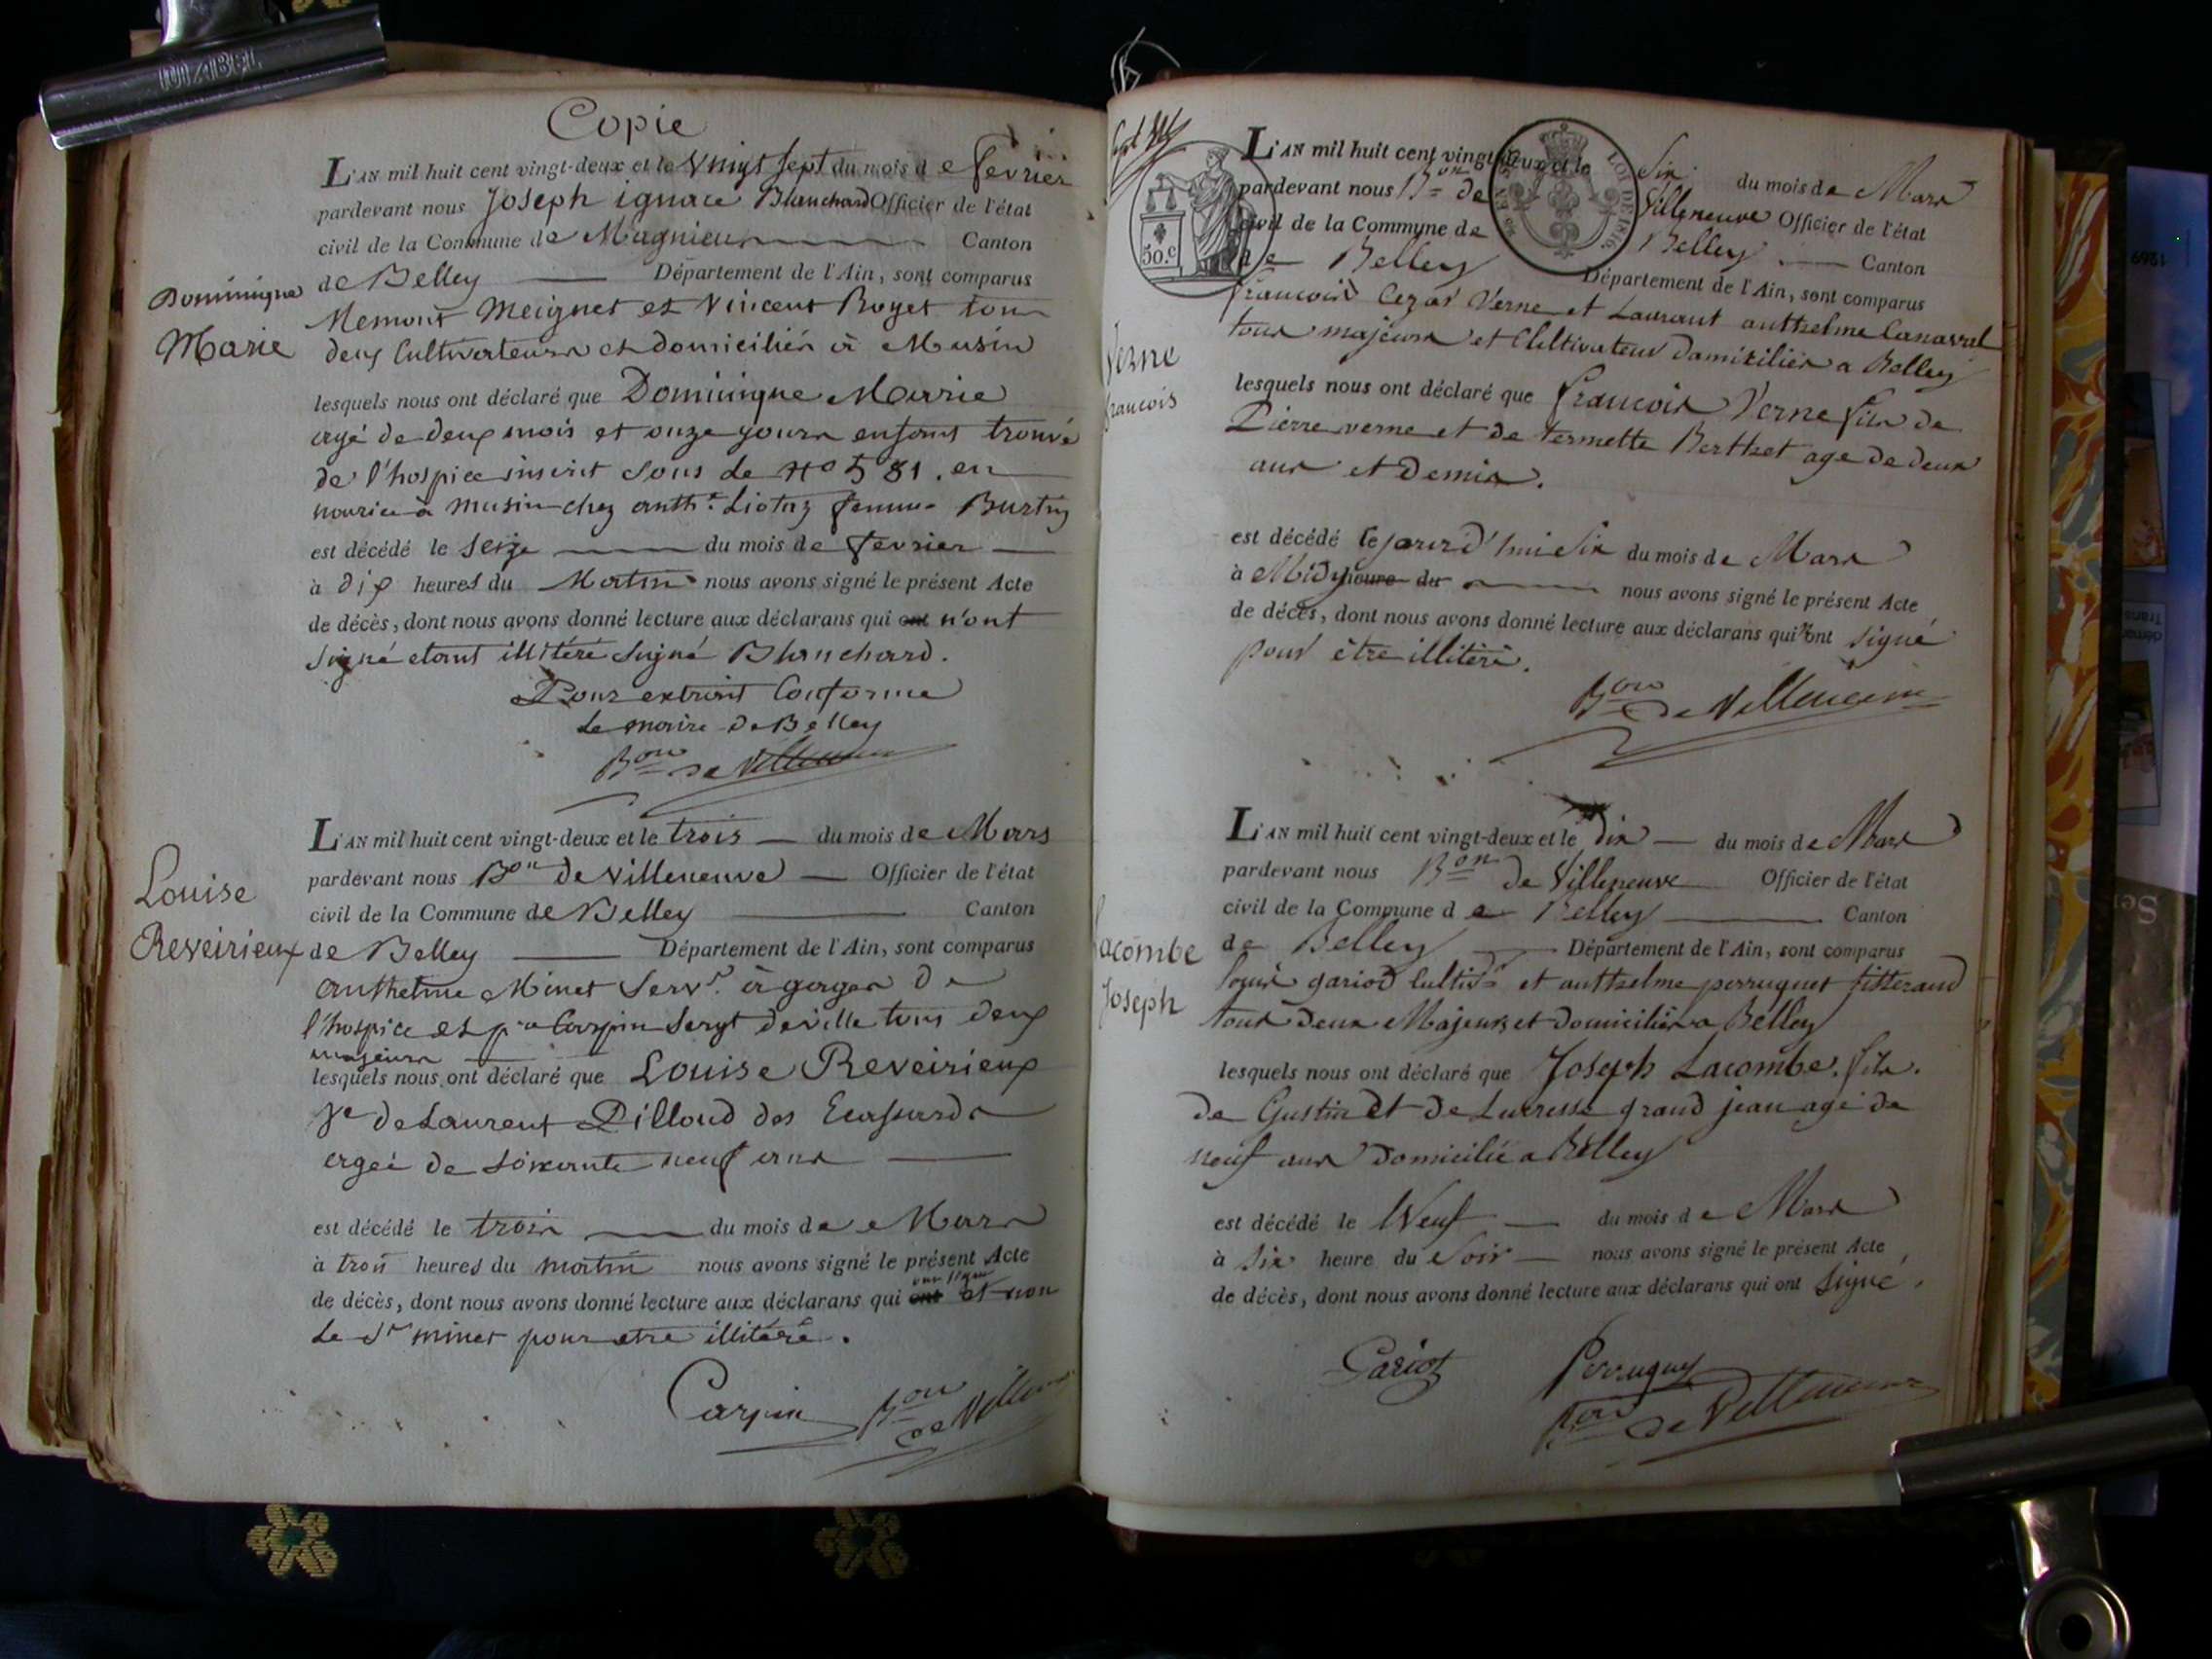 Copie
L'AN mil huit cent vingt-deux et le vingt sept du mois de fevrier
pardevant nous Joseph ignace Blanchard Officier de l'état
civil de la Commune de Magnieu Canton
de Belley Département de l'Ain, sont comparus
Dominique
Marie
Memont Meignet et Vincent Royet tous
deux Cultivateurs et domiciliés à Musin
lesquels nous ont déclaré que Dominique Marie
agé de deux mois et onze jours enfant trouvé
de l'hospice inscrit sous le No 581. en
nourice à musin chez anth.e Liotay femme Burtin
est décédé le seize du mois de fevrier
à dix heures du Matin nous avons signé le présent Acte
de décès, dont nous avons donné lecture aux déclarans qui ont n'ont
signé etant illitéré signé Blanchard.
Pour extrait Conforme
Le maire de Belley
Bon de Villeneuve
L'AN mil huit cent vingt-deux et le trois du mois de Mars
pardevant nous Bon de Villeneuve Officier de l'état
civil de la Commune de Belley Canton
Louise
Reveirieux
de Belley Département de l'Ain, sont comparus
anthelme Minet Serv.r à gages de
l'hospice et p.re Carpin Sergt de ville tous deux
majeurs
lesquels nous ont déclaré que Louise Reveirieux
Ve de Laurent Pilloud des Ecassards
agée de soixante neuf ans
est décédé le trois du mois de Mars
à trois heures du matin nous avons signé le présent Acte
de décès, dont nous avons donné lecture aux déclarans qui ont ont signé et non
Le Sr minet pour etre illitéré.
Carpin Bon de Villeneuve
50.c
LOI DE 1816.
L'AN mil huit cent vingt-deux et le Six du mois de Mars
pardevant nous Bon de Villeneuve Officier de l'état
civil de la Commune de Belley Canton
de Belley Département de l'Ain, sont comparus
francois Cezar Verne et Laurant anthelme Canaval
tous majeurs et Cleltivateur Domicilies a Belley
Verne
francois
lesquels nous ont déclaré que francois Verne fils de
Pierre verne et de Berthet age de deux
ans et Demis.
est décédé cejourd'hui Six du mois de Mars
à Midy heure du nous avons signé le présent Acte
de décès, dont nous avons donné lecture aux déclarans qui n'ont signé
pour être illiteré.
Bon de Villeneuve
L'AN mil huit cent vingt-deux et le Dix du mois de Mars
pardevant nous Bon de Villeneuve Officier de l'état
civil de la Commune de Belley Canton
Lacombe
Joseph
de Belley Département de l'Ain, sont comparus
louis gariod Cultivr et anthelme perruquet tisserand
tous deux Majeurs et domiciliés a Belley
lesquels nous ont déclaré que Joseph Lacombe. fils.
de Gustin et de Lucresse grand jean agé de
neuf ans Domicilié a Belley
est décédé le Neuf du mois de Mars
à six heure du Soir nous avons signé le présent Acte
de décès, dont nous avons donné lecture aux déclarans qui ont signé.
Gariot Perruquet
Bon de Villeneuve